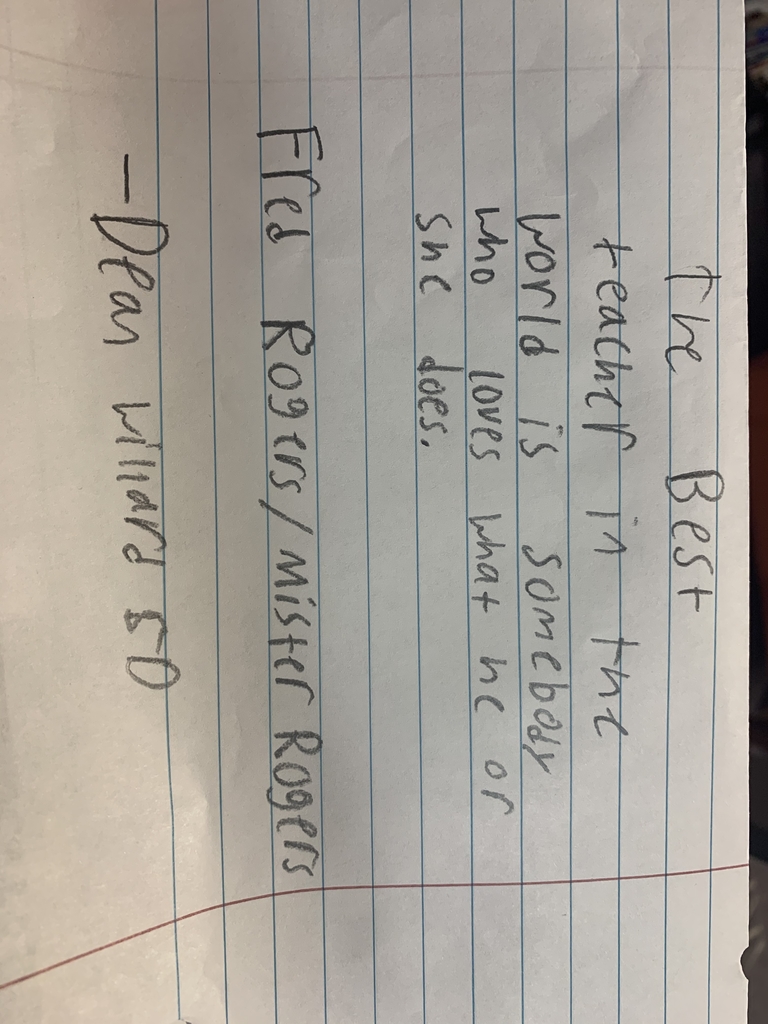 The Best
teacher in the
world is somebody
who loves what he or
she does.
Fred Rogers/Mister Rogers
-Dean Willard 5D